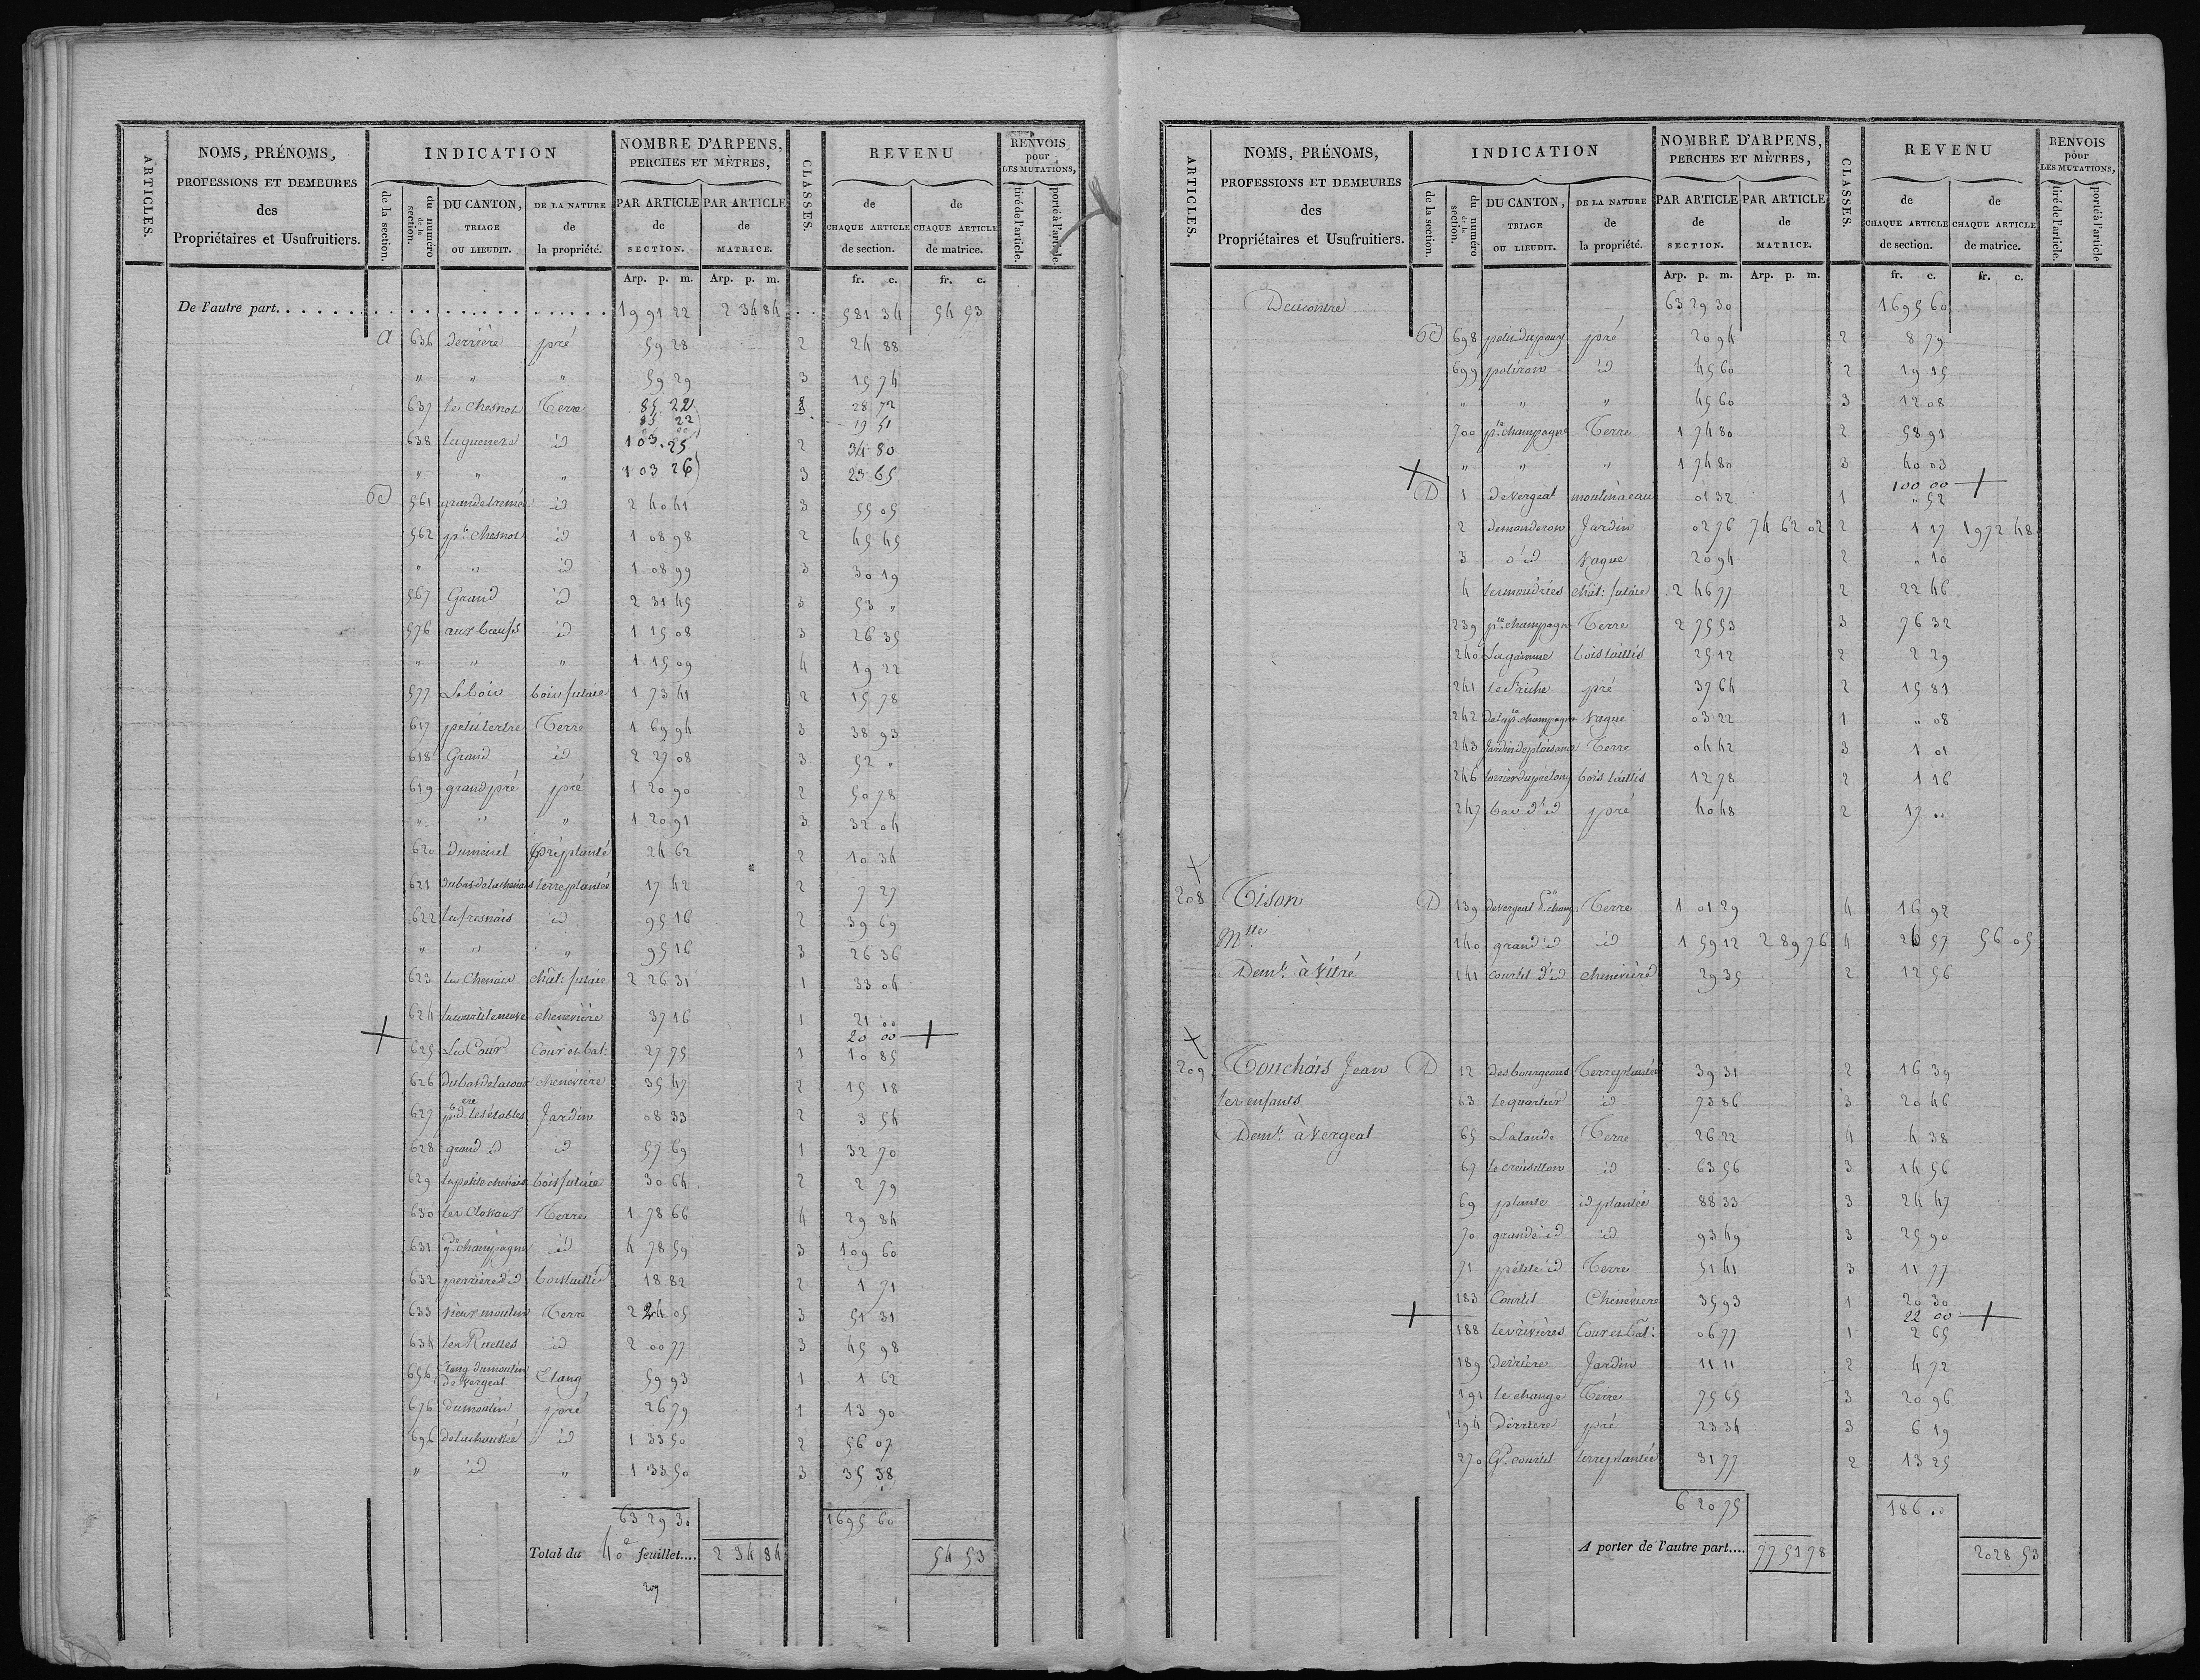 ARTICLES.
NOMS, PRÉNOMS,
PROFESSIONS ET DEMEURES
des
Propriétaires et Usufruitiers.
INDICATION
de la section.
du numéro de la section.
DU CANTON,
TRIAGE
OU LIEUDIT.
DE LA NATURE
de
la propriété.
NOMBRE D'ARPENS,
PERCHES ET MÈTRES,
PAR ARTICLE de SECTION.
PAR ARTICLE de MATRICE.
CLASSES.
REVENU
de CHAQUE ARTICLE de section.
de CHAQUE ARTICLE de matrice.
RENVOIS
pour
LES MUTATIONS,
tiré de l'article.
porté à l'article.
Arp. p. m. Arp. p. m. fr. c. fr. c.
De l'autre part. 19 91 22 2 34 84 581 34 54 53
A 636 derrière pré 59 28 2 24 88
" " " 59 29 3 15 74
637 le Chesnot Terre 85 22 2 28 72
85 22 3 19 51
638 id 103.25 2 34 80
" " " 1 03 26 3 23 65
561 id 2 40 41 3 55 05
562 pt. Chesnot id 1 08 98 2 45 45
" " id 1 08 99 3 30 19
567 Grand id 2 31 45 3 53 "
576 aux bœufs id 1 15 08 3 26 35
" " " 1 15 09 4 19 22
577 Le bois bois futaie 1 73 41 2 15 78
617 petit tertre Terre 1 69 94 3 38 93
618 Grand id 2 27 08 3 52 "
619 grand pré pré 1 20 90 2 50 78
" " " 1 20 91 3 32 04
620 pré planté 24 62 2 10 34
621 terre plantée 17 42 2 7 27
622 la fresnais id 95 16 2 39 69
" " " 95 16 3 26 36
623 chât: futaie 2 26 31 1 33 04
624 chenevière 37 16 1 21 00
20 00
625 La Cour Cour et bat: 27 75 1 10 85
626 du bas de la cour chenevière 35 47 2 15 18
627 pt. d. les étables Jardin 08 33 2 3 54
628 grand id id 57 69 1 32 70
629 la petite chenais bois futaie 30 64 2 2 79
630 les Closeaux Terre 1 78 66 4 29 84
631 gde champagne id 4 78 59 3 109 60
632 perrière d'id bois taillis 18 82 2 1 71
633 vieux moulin Terre 2 24 05 3 51 31
634 les Ruelles id 2 00 77 3 45 98
656 Etang du moulin de Vergeal Etang 59 93 1 1 62
676 du moulin pré 26 79 1 13 90
696 de la chaussée id 1 33 50 2 56 07
" id " 1 33 50 3 35 38
63 29 30 1695 60
Total du 40e feuillet.... 2 34 84 54 53
209
ARTICLES.
NOMS, PRÉNOMS,
PROFESSIONS ET DEMEURES
des
Propriétaires et Usufruitiers.
INDICATION
de la section.
du numéro de la section.
DU CANTON,
TRIAGE
OU LIEUDIT.
DE LA NATURE
de
la propriété.
NOMBRE D'ARPENS,
PERCHES ET MÈTRES,
PAR ARTICLE de SECTION.
PAR ARTICLE de MATRICE.
CLASSES.
REVENU
de CHAQUE ARTICLE de section.
de CHAQUE ARTICLE de matrice.
RENVOIS
pour
LES MUTATIONS,
tiré de l'article.
porté à l'article
Arp. p. m. Arp. p. m. fr. c. fr. c.
Decontre 63 29 30 1695 60
698 pré 20 94 2 8 79
699 id 45 60 2 19 15
" " " 45 60 3 12 08
700 pte. champagne Terre 1 74 80 2 58 91
" " " 1 74 80 3 40 03
100 00
D 1 de Vergeal moulin à eau 01 32 1 " 52
2 Jardin 02 76 74 62 02 2 1 17 1972 48
3 d'id Vague 20 94 2 " 10
4 chât: futaie 2 46 77 2 22 46
239 pte. champagne Terre 2 75 53 3 76 32
240 La garenne bois taillis 25 12 2 2 29
241 le Friche pré 37 64 2 15 81
242 de la pte. champagne Vague 03 22 1 " 08
243 Jardin de plaisance Terre 04 42 3 1 01
246 bois taillis 12 78 2 1 16
247 bas d'id pré 40 48 2 17 "
208 Tison D 139 Terre 1 01 29 4 16 92
Mlle 140 grand id id 1 59 12 2 89 76 4 26 57 56 05
Demt. à Vitré 141 courtil d'id chenevière 29 35 2 12 56
209 Touchais Jean D 12 des bourgeons Terre plantée 39 31 2 16 39
les enfants 63 le quartier id 73 86 3 20 46
Demt. à Vergeal 65 La lande Terre 26 22 4 4 38
67 id 63 56 3 14 56
69 plante id plantée 88 33 3 24 47
70 grande id id 93 49 3 25 90
71 petite id Terre 51 41 3 11 77
183 Courtil Chenevière 35 93 1 20 30
22 00
188 les rivières Cour et bât: 06 77 1 2 65
189 Derrière Jardin 11 11 2 4 72
191 le change Terre 75 65 3 20 96
194 Derrière pré 23 34 3 6 19
270 Gd. courtil terre plantée 31 77 2 13 25
6 20 75 186 "
A porter de l'autre part.... 77 51 78 2028 53